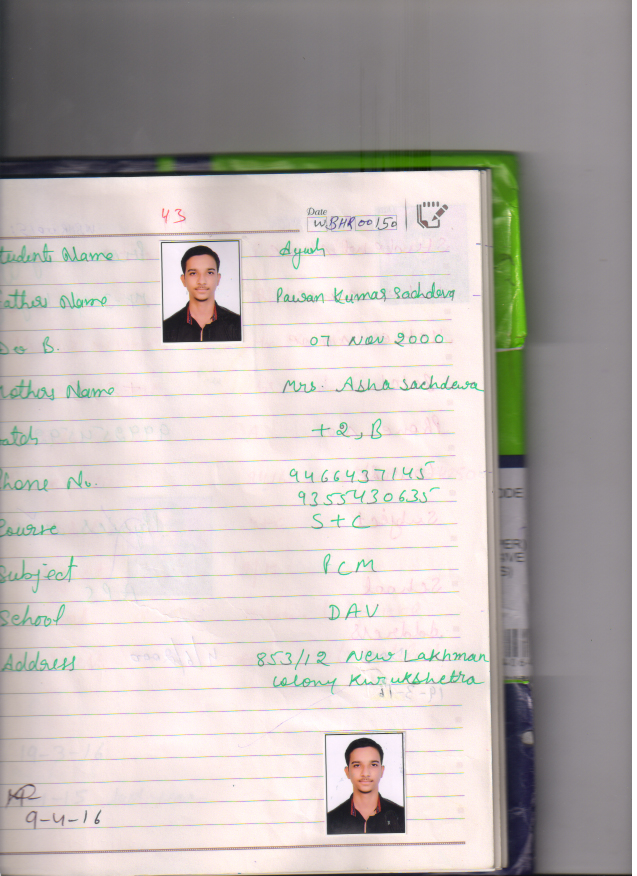 43
Date
WBHR00150
tudents Name Ayush
ather Name Pawan Kumar Sachdeva
Do B. 07 Nov 2000
others Name Mrs. Asha Sachdeva
atch +2, B
hone No. 9466437145
9355430635
Course S+C
Subject PCM
School DAV
Address 853/12 New Lakhman
Colony Kurukshetra
9-4-16